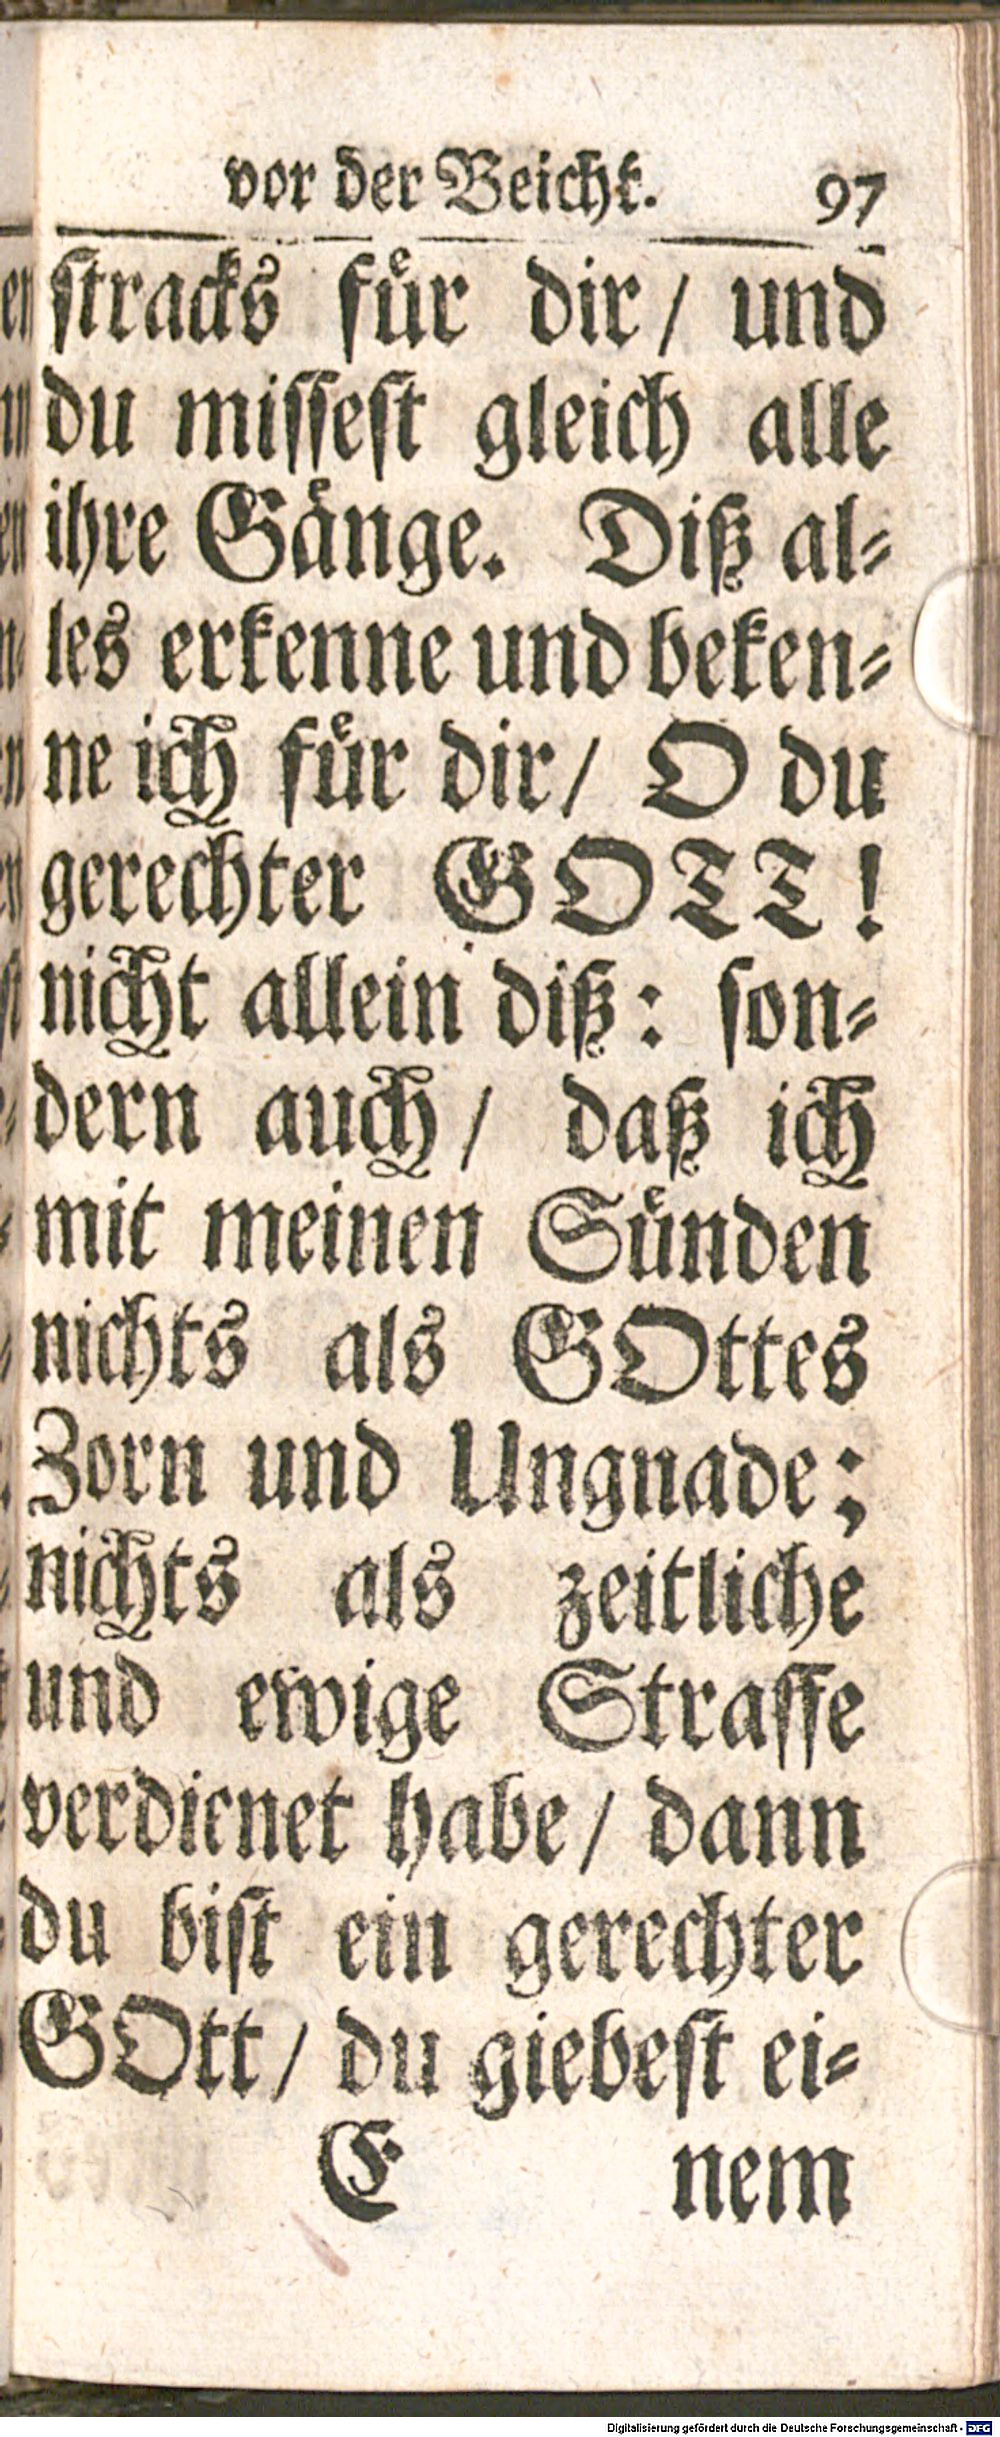 vor der Beicht. 97
stracks fuͤr dir / und
du missest gleich alle
ihre Gaͤnge. Diß al⸗
les erkenne und beken⸗
ne ich fuͤr dir / O du
gerechter GOTT!
nicht allein diß: son⸗
dern auch / daß ich
mit meinen Suͤnden
nichts als GOttes
Zorn und Ungnade;
nichts als zeitliche
und ewige Strasse
verdienet habe / dann
du bist ein gerechter
GOtt / du giebest ei⸗
E nem
Digitalisierung gefördert durch die Deutsche Forschungsgemeinschaft - DFG